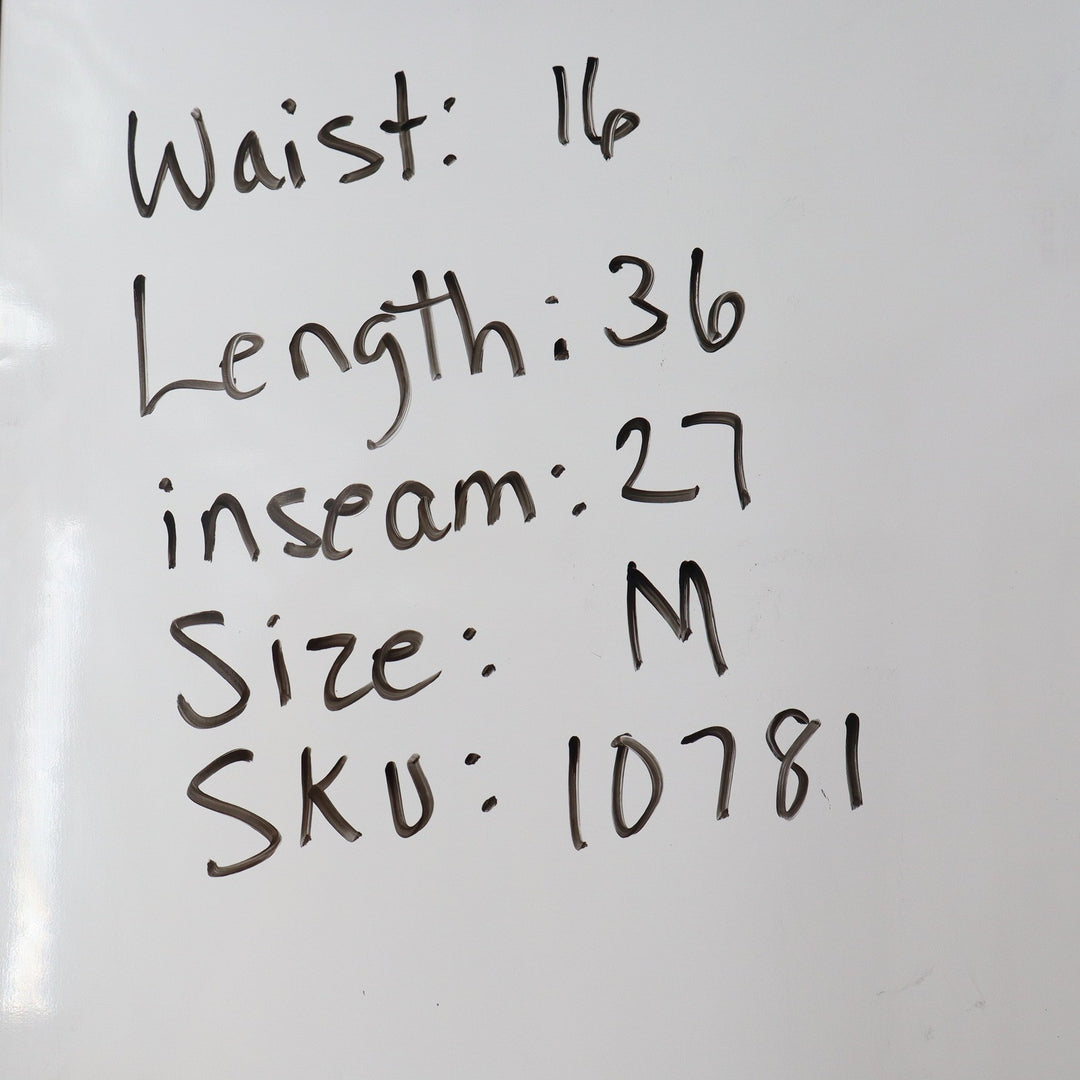 Waist: 16
Length: 36
inseam: 27
Size: M
SKU: 10781